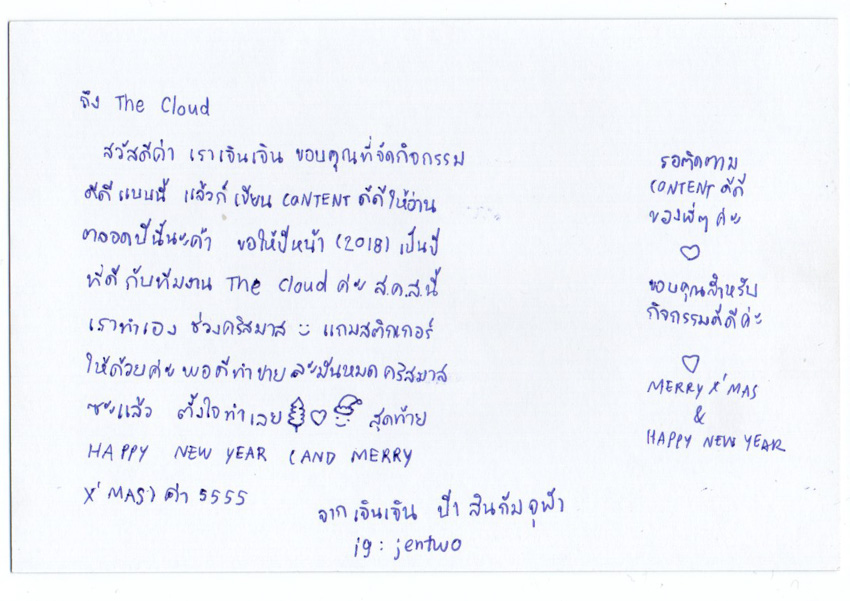 ถึง The Cloud
สวัสดีค่า เราเจินเจิน ขอบคุณที่จัดกิจกรรม
ดีดีแบบนี้ แล้วก็เขียน CONTENT ดีดีให้อ่าน
ตลอดปีนี้นะค้า ขอให้ปีหน้า (2018) เป็นปี
ที่ดีกับทีมงาน The Cloud ค่ะ ส.ค.ส.นี้
เราทำเอง ช่วงคริสมาส แถมสติกเกอร์
ให้ด้วยค่ะ พอดีทำขาย ละมันหมดคริสมาส
ซะแล้ว ตั้งใจทำเลย ♡ สุดท้าย
HAPPY NEW YEAR (AND MERRY
X'MAS) ค่า 5555
จากเจินเจิน ป้า สินกัม จุฬา
ig: jentwo
รอติดตาม
CONTENT ดีดี
ของพี่ๆ ค่ะ
♡
ขอบคุณสำหรับ
กิจกรรมดีดีค่ะ
♡
MERRY X'MAS
&
HAPPY NEW YEAR